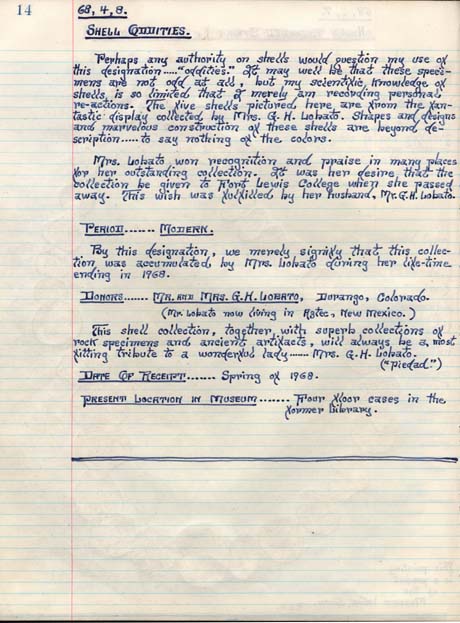 14
68, 4, 8.
SHELL ODDITIES.
Perhaps any authority on shells would question my use of
this designation....."oddities." It may well be that these speci-
mens are not odd at all, but my scientific knowledge of
shells, is so limited that I merely am recording personal
re-actions. The five shells pictured here are from the fan-
tastic display collected by Mrs. G. H. Lobato. Shapes and designs
and marvelous construction of these shells are beyond de-
scription..... to say nothing of the colors.
Mrs. Lobato won recognition and praise in many places
for her outstanding collection. It was her desire that the
collection be given to Fort Lewis College when she passed
away. This wish was fulfilled by her husband, Mr. G.H. Lobato.
PERIOD...... MODERN.
By this designation, we merely signify that this collec-
tion was accumulated by Mrs. Lobato during her life-time
ending in 1968.
DONORS...... MR. AND MRS. G. H. LOBATO, Durango, Colorado.
(Mr. Lobato now living in Aztec, New Mexico.)
This shell collection, together with superb collections of
rock specimens and ancient artifacts, will always be a most
fitting tribute to a wonderful lady...... Mrs. G. H. Lobato.
("Piedad.")
DATE OF RECEIPT....... Spring of 1968.
PRESENT LOCATION IN MUSEUM....... Four floor cases in the
former library.